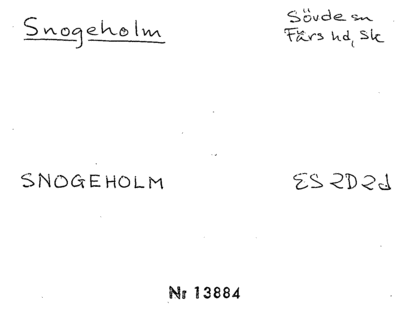 Snogeholm
Sövde sn
Färs hd, Sk
SNOGEHOLM
ES 2D2d
Nr 13884